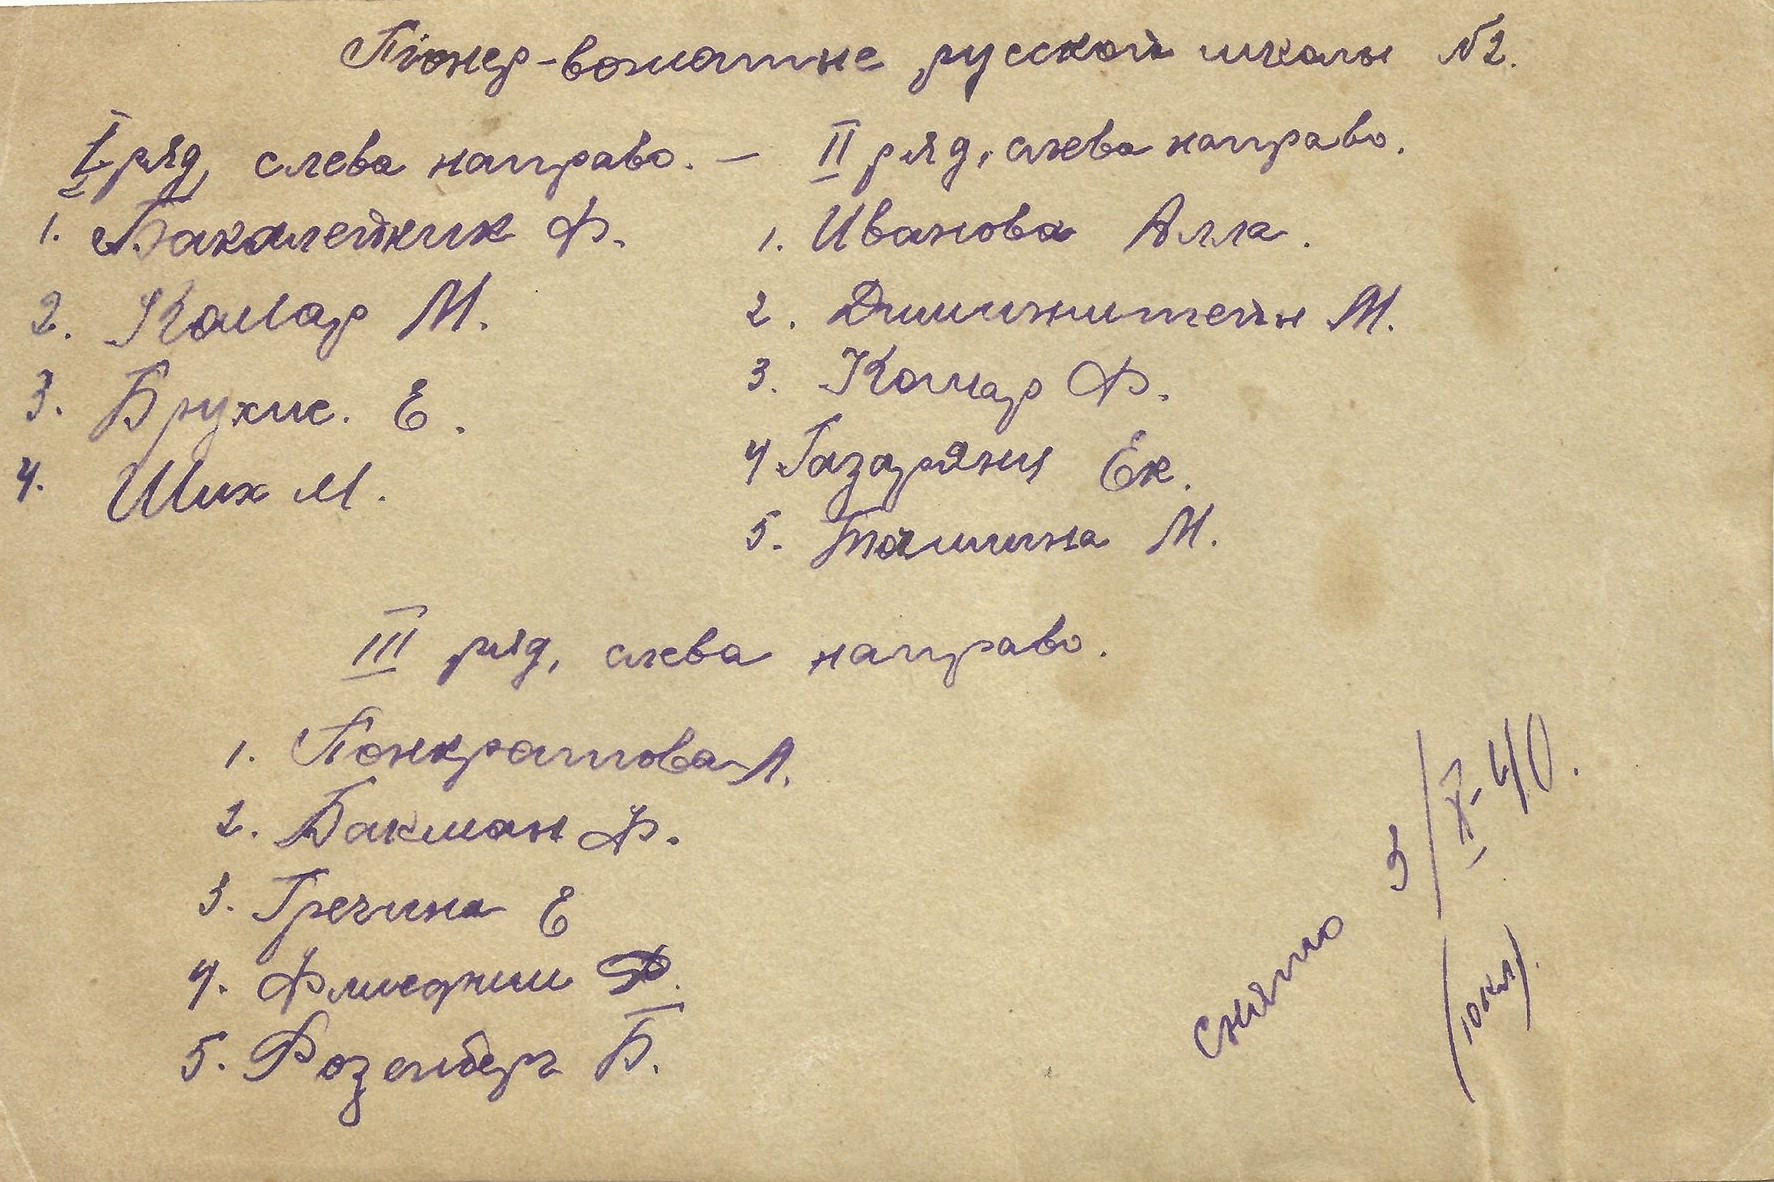 Піонер-вожатые русской школы №2.
I ряд, слева направо. –
1. Бакалейник Ф.
2. Комар М.
3. Брухис. Е.
4. Ших М.
II ряд, слева направо.
1. Иванова Алла.
2. М.
3. Комар Ф.
4 Газарянц Ек.
5. Тамшина М.
III ряд, слева направо.
1. Понкратова А.
2. Бакман Ф.
3. Гречина Е
4.
5. Розенберг Б.
снято 5/X-40.
(10 кл).